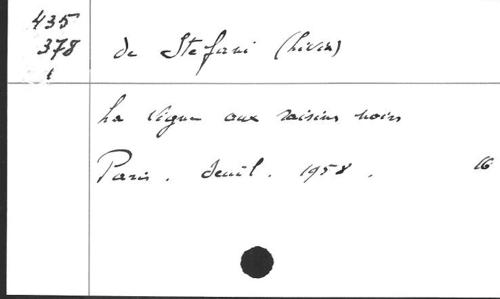 435
378 de Stefani (Livia)
La Vigne aux raisins noirs
Paris. Seuil. 1958. 16